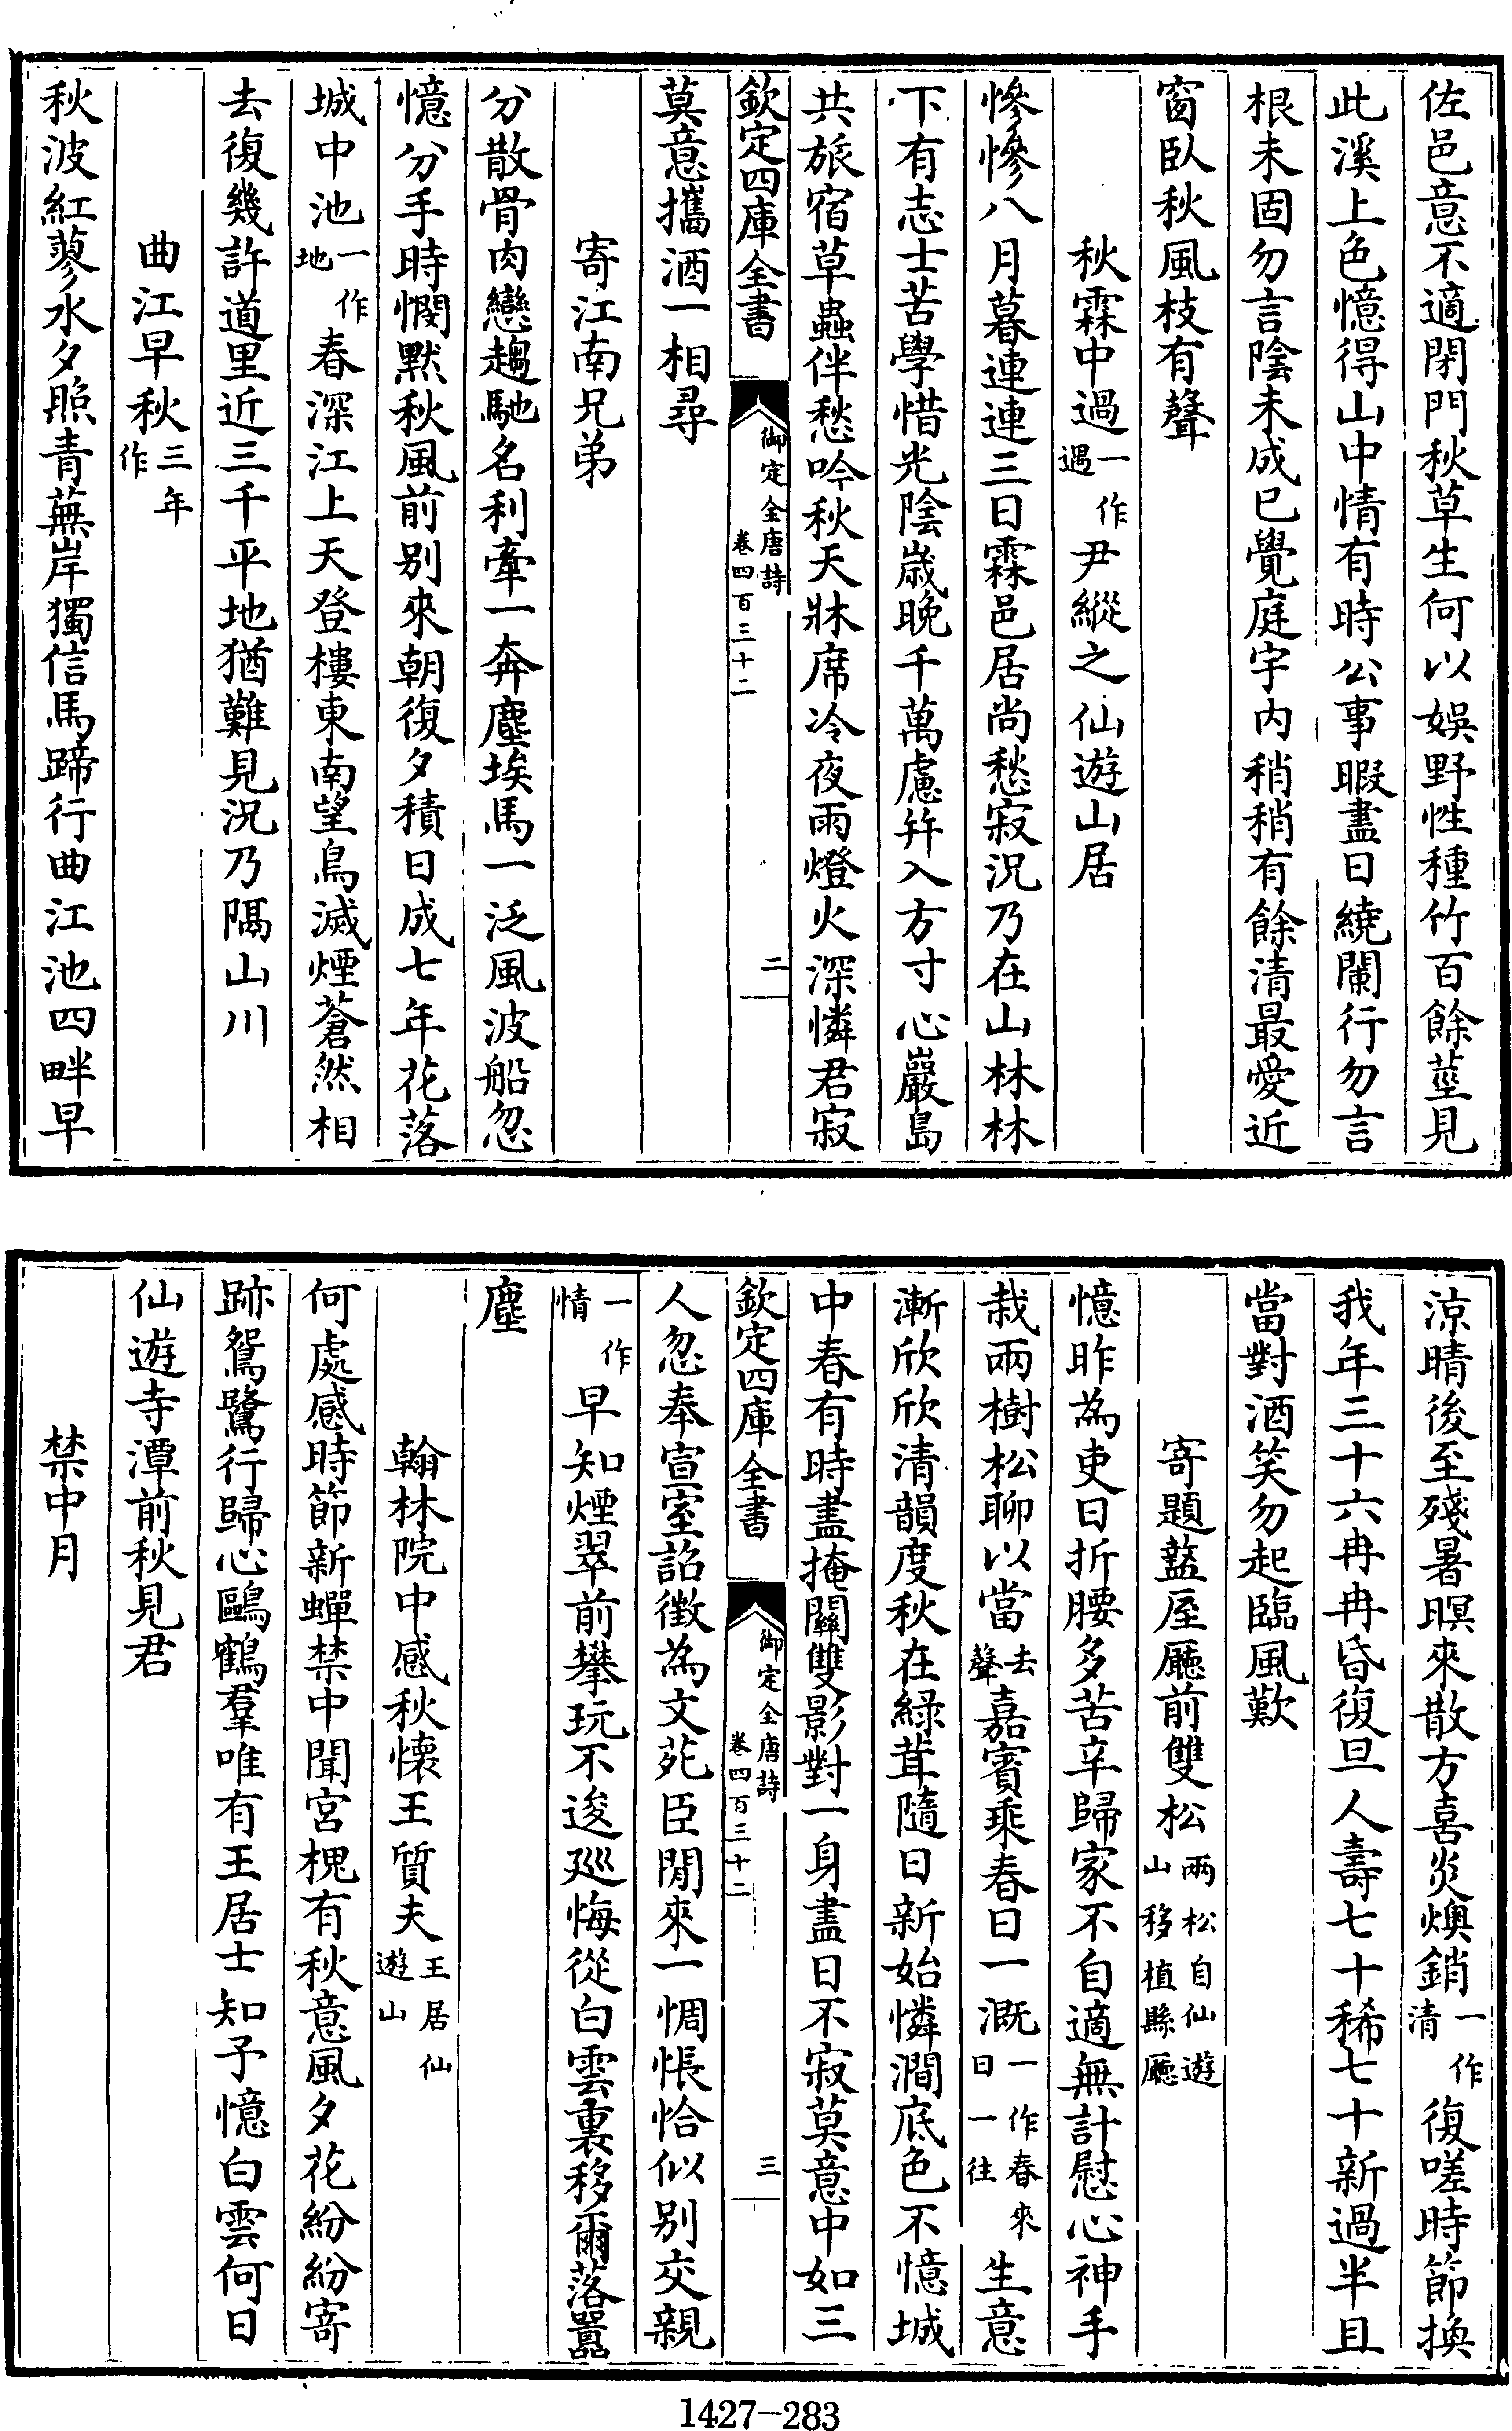 佐邑意不適閉門秋草生何以娛野性種竹百餘莖見
此溪上色憶得山中情有時公事暇盡日繞闌行勿言
根未固勿言陰未成已覺庭宇内稍稍有餘清最愛近
窗臥秋風枝有聲
秋霖中過一作遇尹縱之仙遊山居
慘慘八月暮連連三日霖邑居尚愁寂況乃在山林林
下有志士苦學惜光陰歲晚千萬慮幷入方寸心巖鳥
共旅宿草蟲伴愁吟秋天牀席冷夜雨燈火深憐君寂
欽定四庫全書
御定全唐詩
卷四百三十二
二
莫意攜酒一相尋
寄江南兄弟
分散骨肉戀趨馳名利牽一奔塵埃馬一泛風波船忽
憶分手時憫默秋風前别來朝復夕積日成七年花落
城中池一作地春深江上天登樓東南望鳥滅煙蒼然相
去復幾許道里近三千平地猶難見況乃隔山川
曲江早秋三年作
秋波紅蓼水夕照青蕪岸獨信馬蹄行曲江池四畔早
涼晴後至殘暑暝來散方喜炎燠銷一作清復嗟時節換
我年三十六冉冉昏復旦人壽七十稀七十新過半且
當對酒笑勿起臨風歎
寄題盩厔廳前雙松兩松自仙遊山移植縣廳
憶昨為吏日折腰多苦辛歸家不自適無計慰心神手
栽兩樹松聊以當去聲嘉賓乘春日一溉一作春來日一往生意
漸欣欣清韻度秋在綠茸隨日新始憐澗底色不憶城
中春有時晝掩關雙影對一身盡日不寂莫意中如三
欽定四庫全書
御定全唐詩
卷四百三十二
三
人忽奉宣室詔徵為文苑臣閒來一惆悵恰似别交親
一作情早知煙翠前攀玩不逡巡悔從白雲裏移爾落囂
塵
翰林院中感秋懷王質夫王居仙遊山
何處感時節新蟬禁中聞宮槐有秋意風夕花紛紛寄
跡鴛鷺行歸心鷗鶴羣唯有王居士知予憶白雲何日
仙遊寺潭前秋見君
禁中月
1427-283